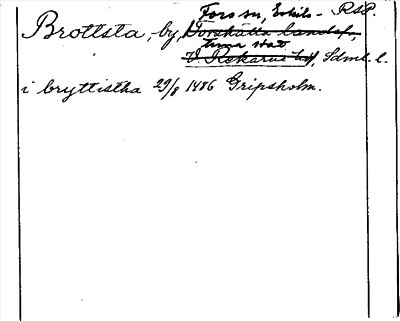 Fors sn, Eskils- RSP.
Brottsta, by, Torshälla landsf.,
tuna stad
V Rekarne hd, Sdml. l.
i bryttistha 29/8 1486 Gripsholm.